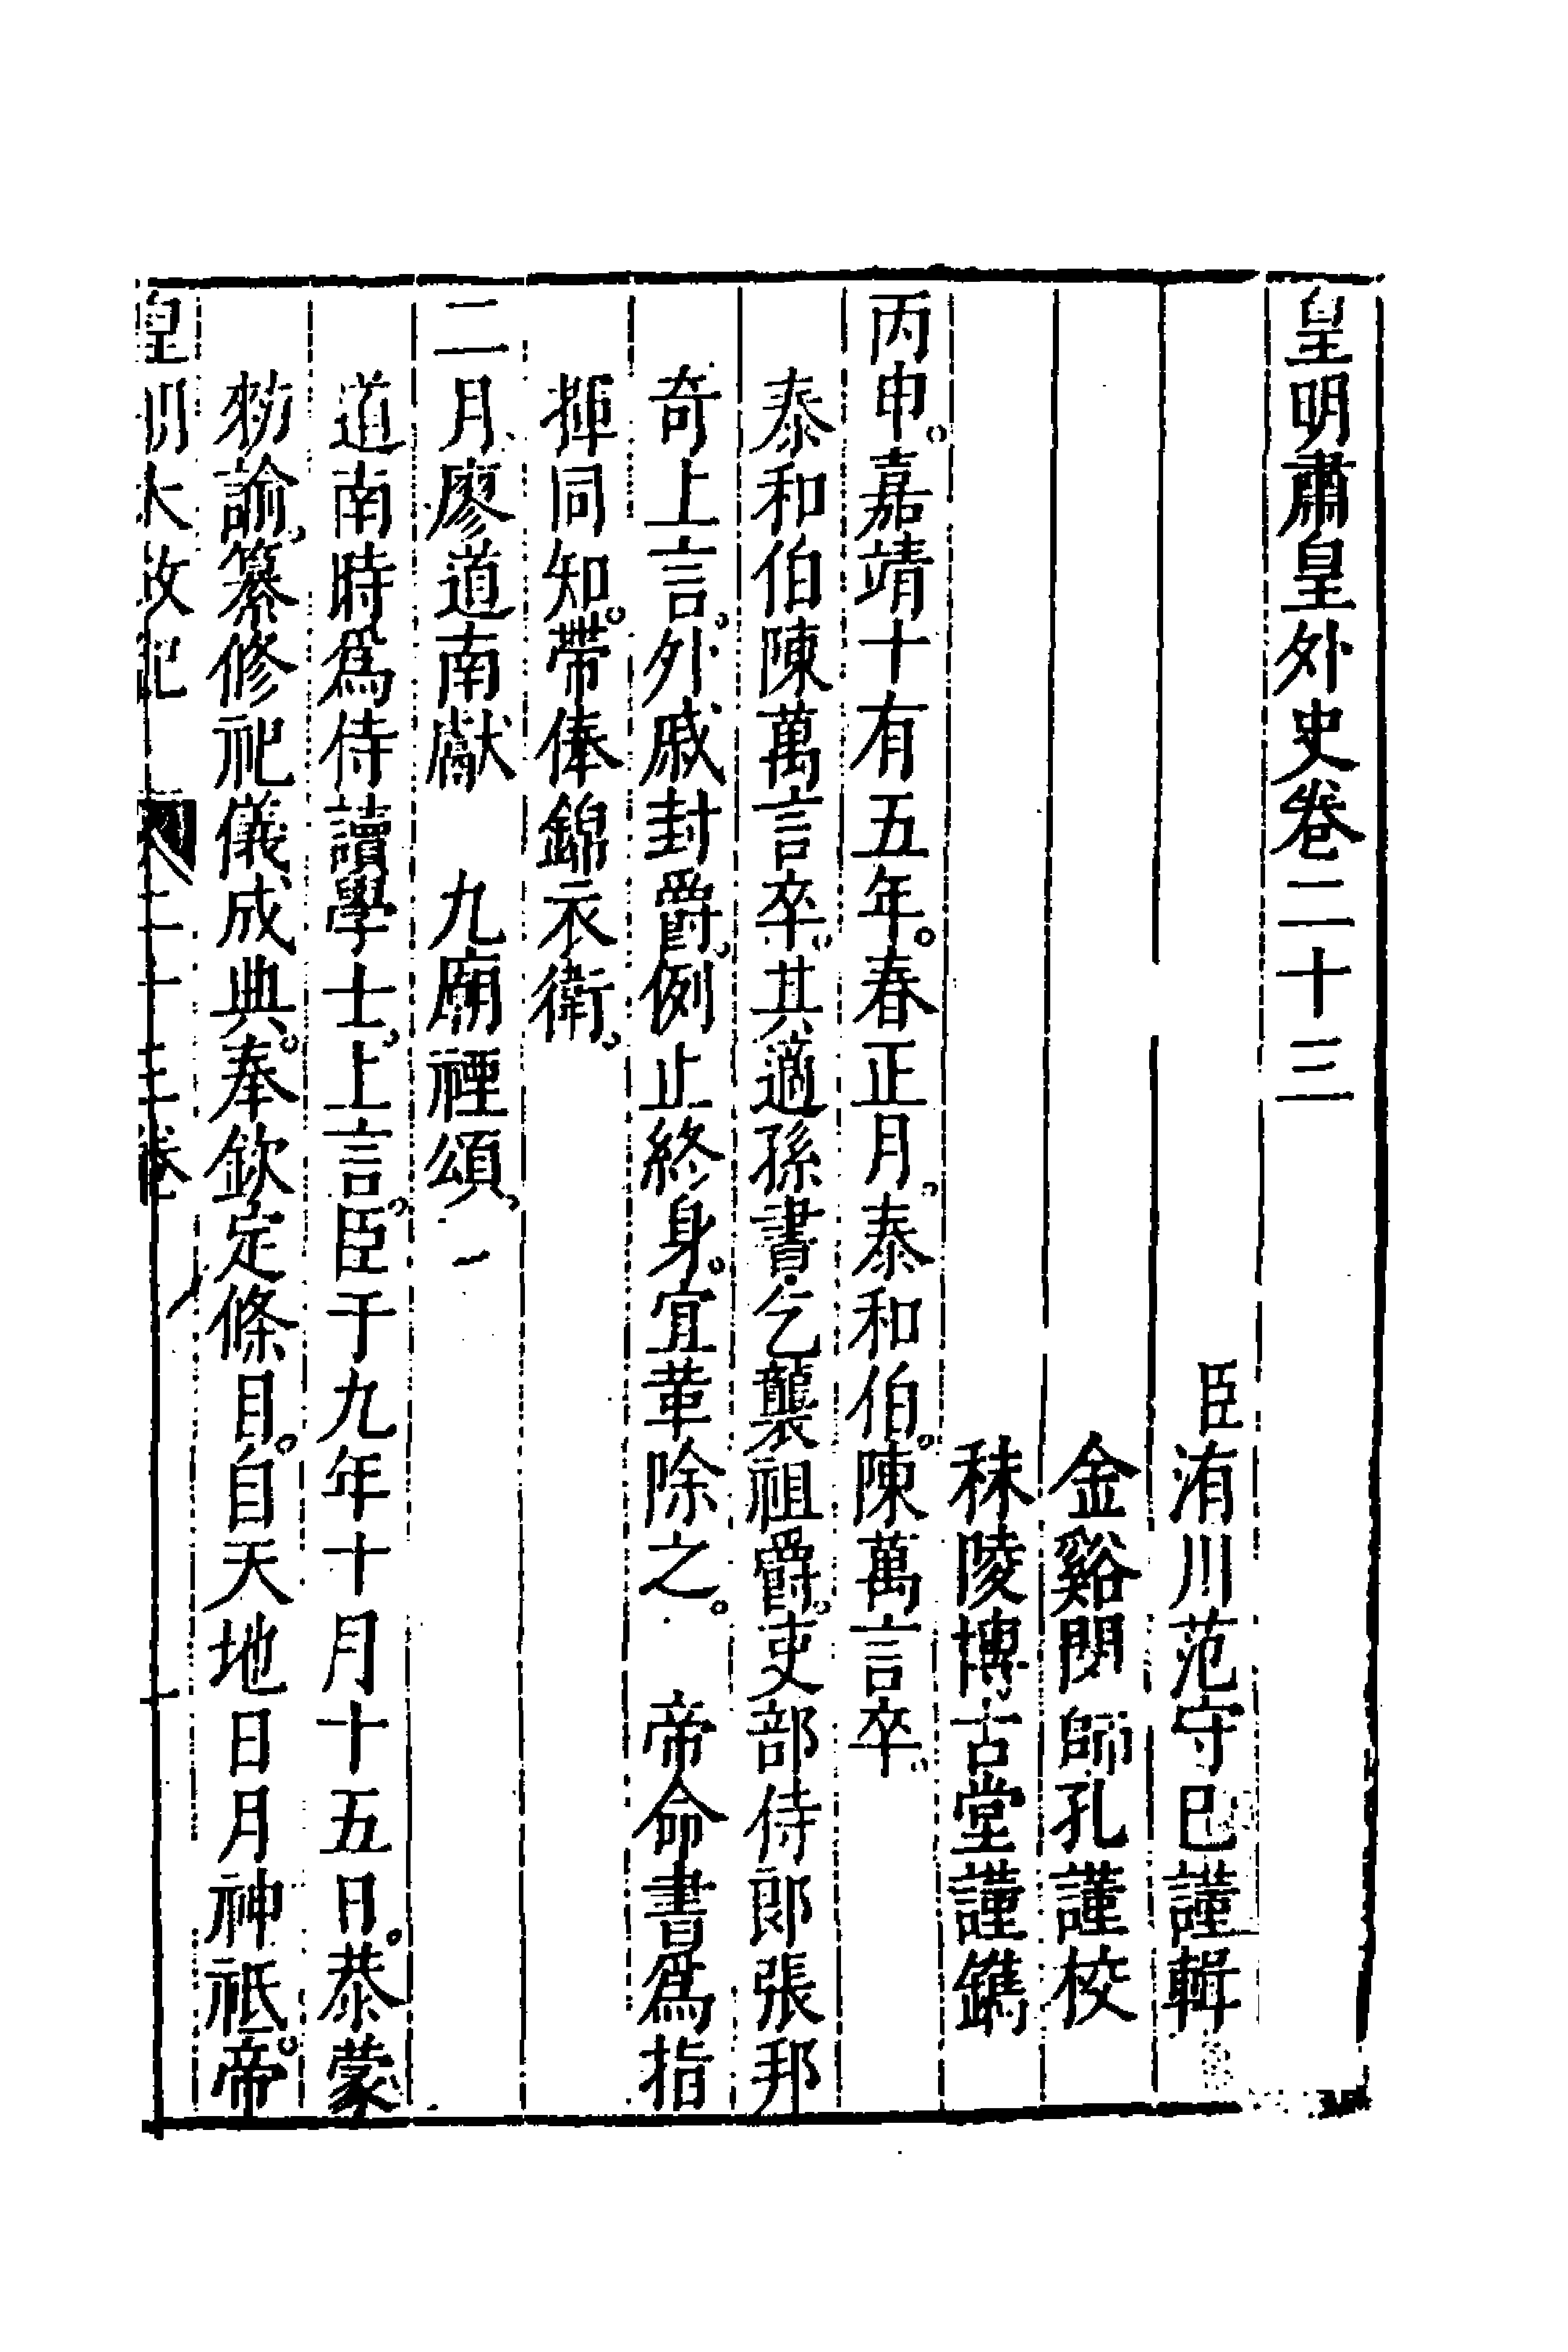 皇明肅皇外史卷二十三
臣洧川范守已謹輯
金谿閔師孔謹校
秣陵博古堂謹鐫
丙申嘉靖十有五年春正月泰和伯陳萬言卒
泰和伯陳萬言卒其適孫書乞襲祖爵吏部侍郎張邦
奇上言外戚封爵例止終身宜革除之　帝命書爲指
揮同知帶俸錦衣衛
二月廖道南獻　九廟禋頌
道南時爲侍讀學士上言臣于九年十月十五日恭蒙
勑諭纂修祀儀成典奉欽定條目自天地日月神祇帝